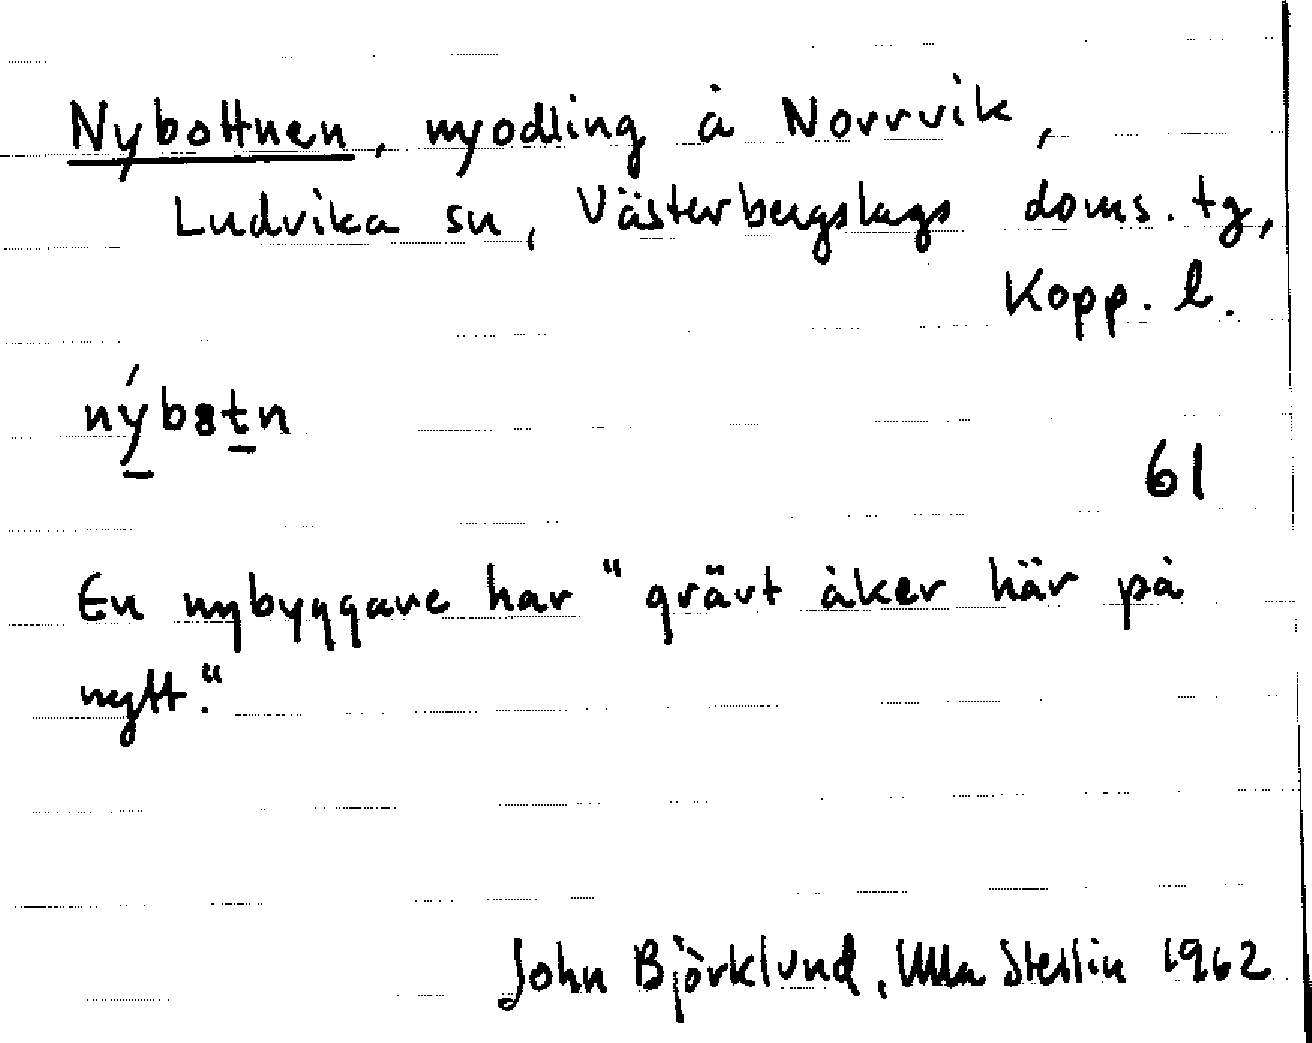 Nybottnen, nyodling å Norrvik,
Ludvika sn, Västerbergslags doms. tg,
Kopp. l.
nýbȣtn
61
En nybyggare har "grävt åker här på
nytt."
John Björklund, Ulla Stellin 1962